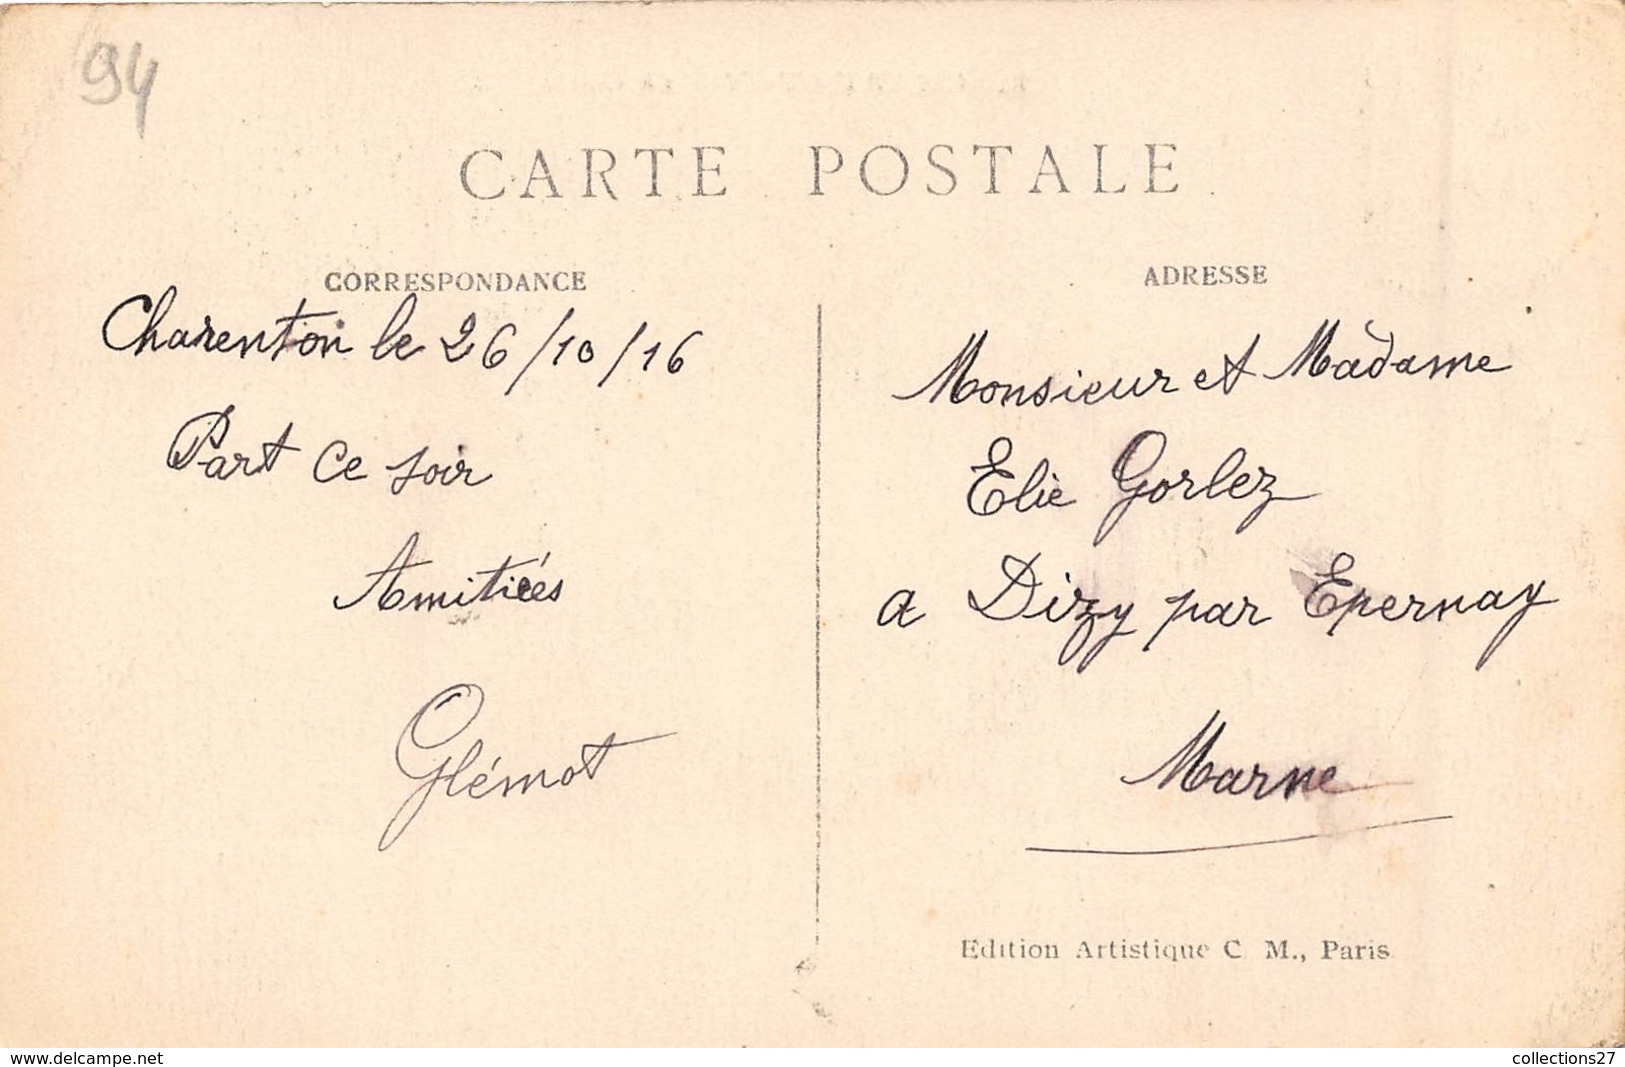 94
CARTE POSTALE
CORRESPONDANCE
Charenton le 26/10/16
Part ce soir
Amitiés
Glémot
ADRESSE
Monsieur et Madame
Elie Gorlez
a Dizy par Epernay
Marne
Edition Artistique C. M., Paris
www.delcampe.net
collections27